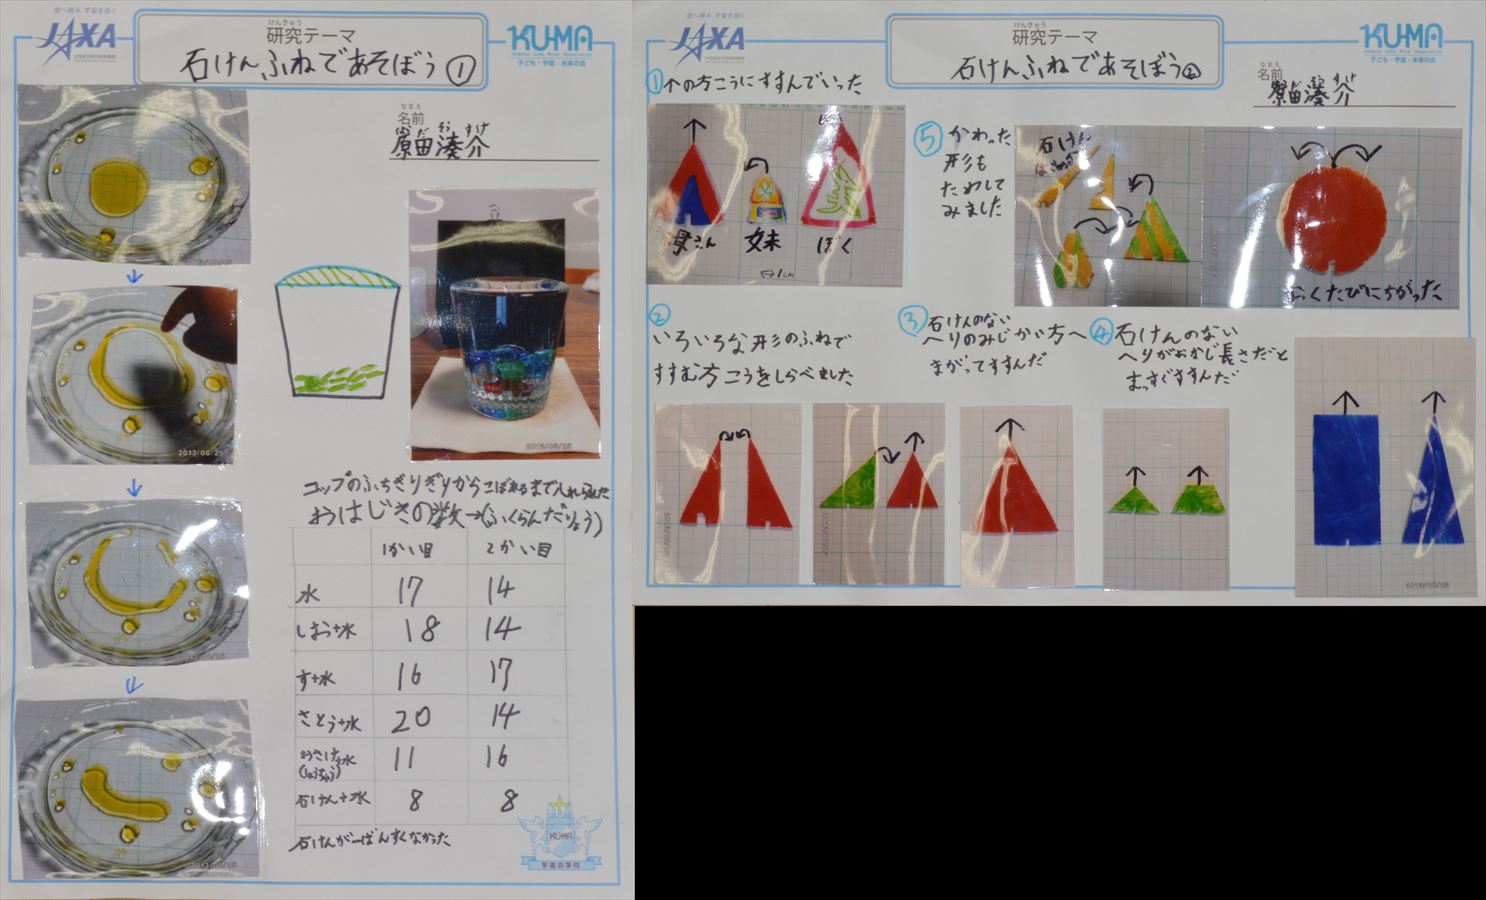 空へ挑み、宇宙を拓く
JAXA
けんきゅう
研究テーマ
石けんふねであそぼう①
KU-MA
子ども・宇宙・未来の会
なまえ
名前
はらだ おうすけ
原田湊介
2013/08/25
2013/08/25
コップのふちぎりぎりからこぼれるまで入れられた
おはじきの数→(ふくらんだりょう)
1かい目 2かい目
水 17 14
しお+水 18 14
す+水 16 17
さとう+水 20 14
おさけ+水 11 16
(しょうちゅう)
石けん+水 8 8
石けんが一ばんすくなかった
KU-MA
宇宙の学校
空へ挑み、宇宙を拓く
JAXA
けんきゅう
研究テーマ
石けんふねであそぼう②
KU-MA
子ども・宇宙・未来の会
なまえ
名前
原田湊介
①↑の方こうにすすんでいった
母さん 妹 ぼく
1cm
②
いろいろな形のふねで
すすむ方こうをしらべました
③石けんのない
へりのみじかい方へ
まがってすすんだ
④石けんのない
へりがおなじ長さだと
まっすぐすすんだ
⑤かわった
形も
ためして
みました
石けん
ふくたびにちがった